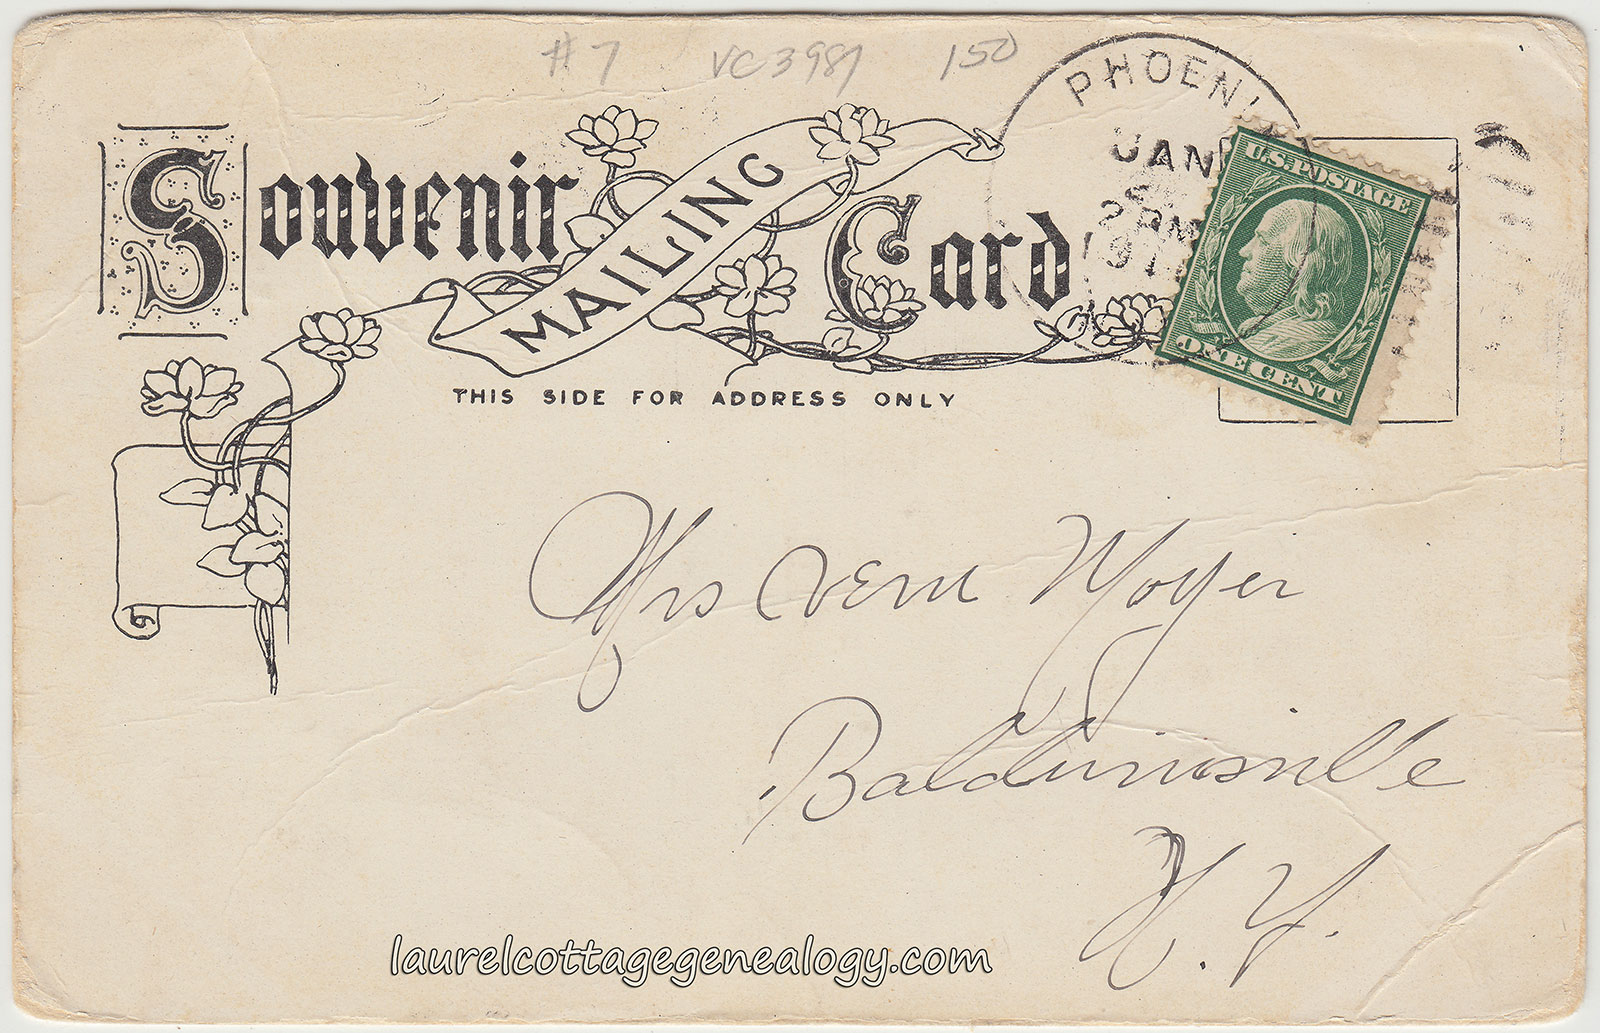 # 7 VC3987 150
PHOENI
JAN
2 PM
191
U.S. POSTAGE
ONE CENT
Souvenir
MAILING
Card
THIS SIDE FOR ADDRESS ONLY
Mrs Vern Moyer
Baldwinsville
N. Y.
laurelcottagegenealogy.com